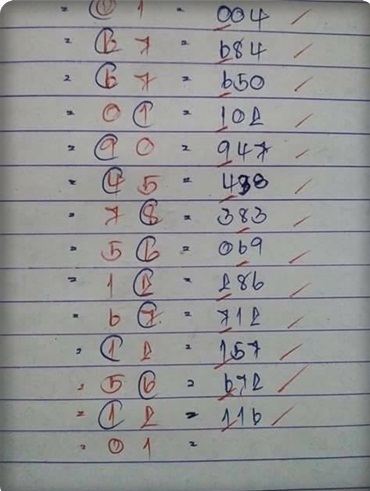 = 0 1 = 004
= 6 7 = 684
= 6 7 = 650
= 0 1 = 102
= 9 0 = 947
= 4 5 = 438
= 7 8 = 383
= 5 6 = 069
= 1 2 = 286
= 6 7 = 712
= 1 2 = 157
= 5 6 = 672
= 1 2 = 116
= 0 1 =